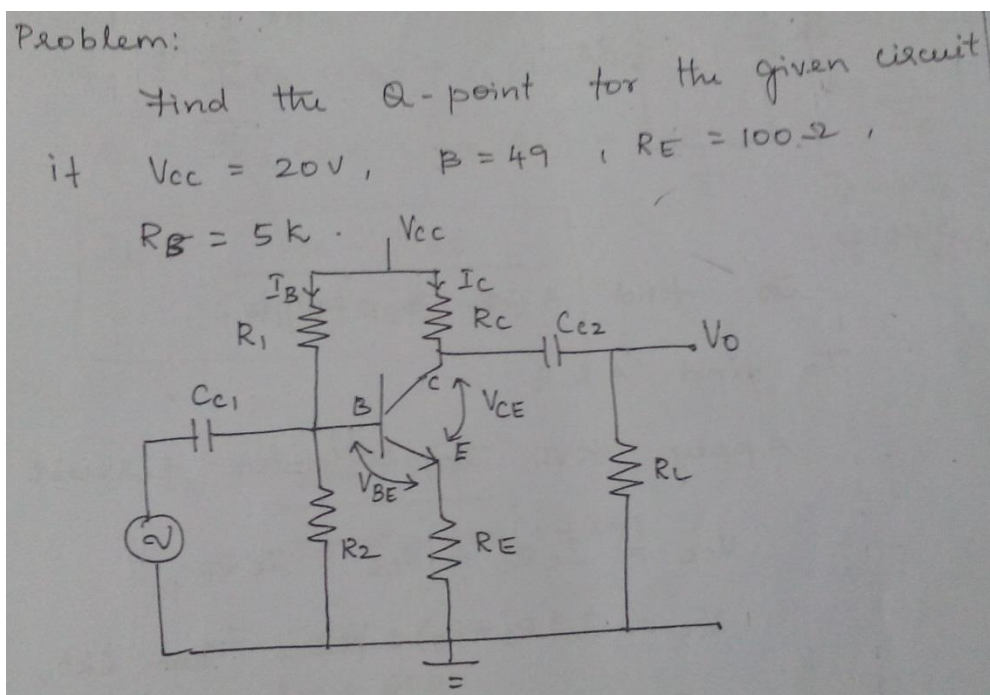 Problem:
Find the Q-point for the given circuit
if Vcc = 20V, β = 49, RE = 100Ω,
RB = 5K.
Vcc
IB
Ic
R1
Rc
Cc2
Vo
Cc1
C
B
VCE
E
VBE
RL
R2
RE